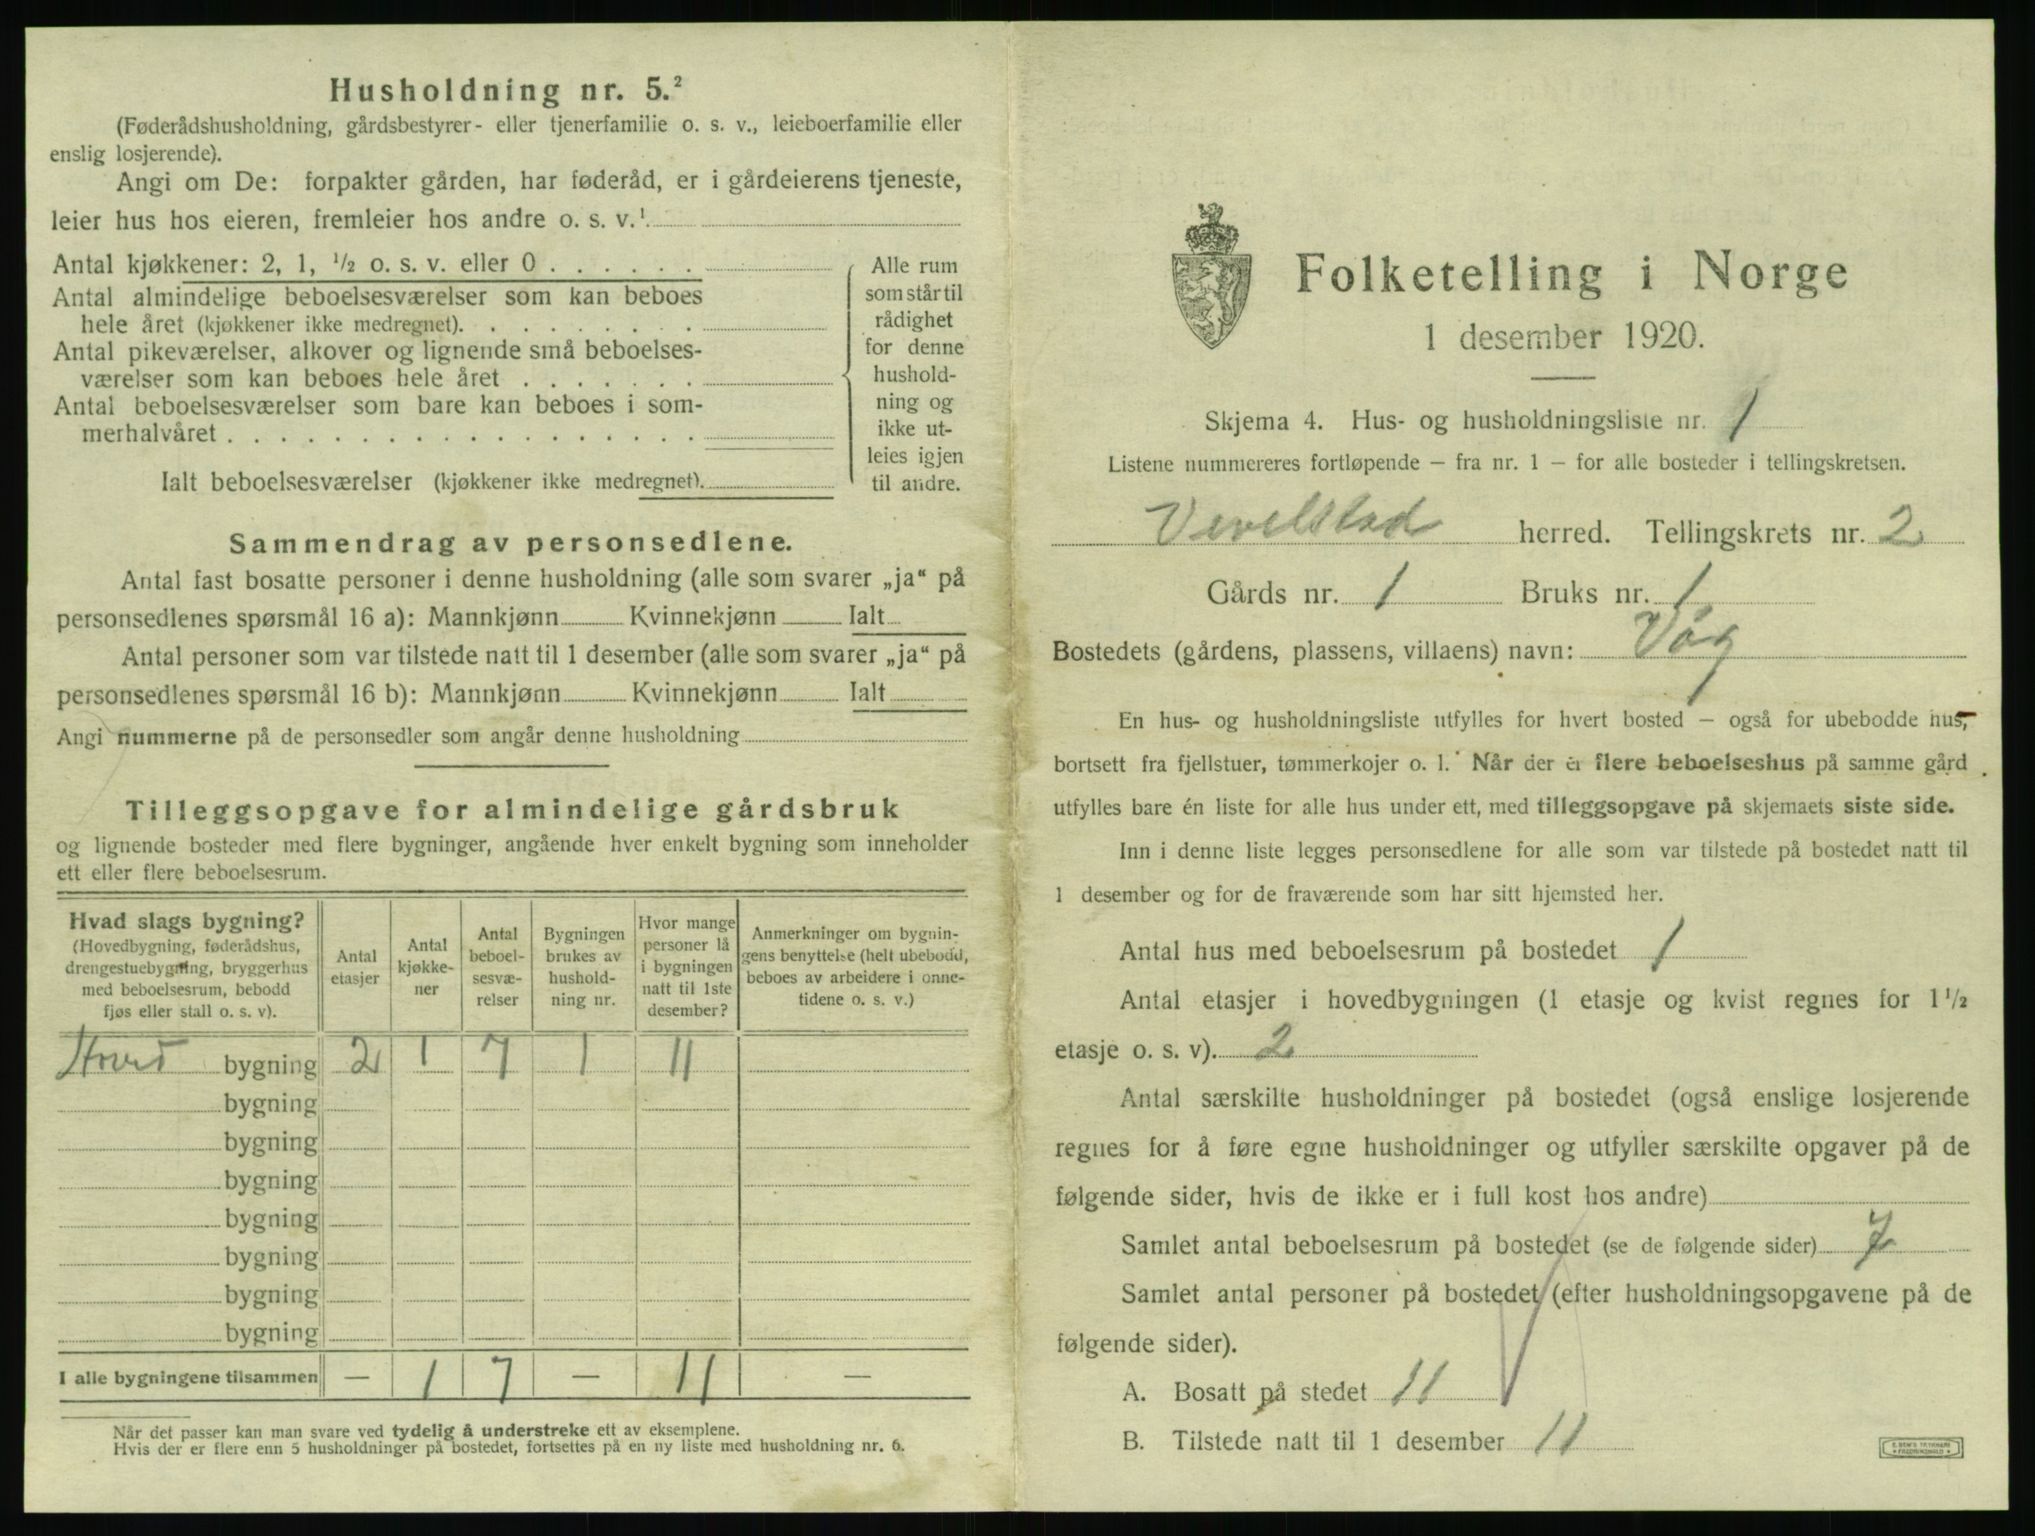 Husholdning nr. 5.²
(Føderådshusholdning, gårdsbestyrer- eller tjenerfamilie o. s. v., leieboerfamilie eller
enslig losjerende).
Angi om De: forpakter gården, har føderåd, er i gårdeierens tjeneste,
leier hus hos eieren, fremleier hos andre o. s. v.¹
Antal kjøkkener: 2, 1, ½ o. s. v. eller 0 . . . . . .
Antal almindelige beboelsesværelser som kan beboes
hele året (kjøkkener ikke medregnet). . . . . . . . .
Antal pikeværelser, alkover og lignende små beboelses-
værelser som kan beboes hele året . . . . . . .
Antal beboelsesværelser som bare kan beboes i som-
merhalvåret . . . . . . . . . . . . . . . . . .
Ialt beboelsesværelser (kjøkkener ikke medregnet).
Alle rum
som står til
rådighet
for denne
hushold-
ning og
ikke ut-
leies igjen
til andre.
Sammendrag av personsedlene.
Antal fast bosatte personer i denne husholdning (alle som svarer „ja“ på
personsedlenes spørsmål 16 a): Mannkjønn Kvinnekjønn Ialt
Antal personer som var tilstede natt til 1 desember (alle som svarer „ja“ på
personsedlenes spørsmål 16 b): Mannkjønn Kvinnekjønn Ialt
Angi nummerne på de personsedler som angår denne husholdning
Tilleggsopgave for almindelige gårdsbruk
og lignende bosteder med flere bygninger, angående hver enkelt bygning som inneholder
ett eller flere beboelsesrum.
Hvad slags bygning?
(Hovedbygning, føderådshus,
drengestuebygning, bryggerhus
med beboelsesrum, bebodd
fjøs eller stall o. s. v).
Antal
etasjer
Antal
kjøkke-
ner
Antal
beboel-
sesvæ-
relser
Bygningen
brukes av
hushold-
ning nr.
Hvor mange
personer lå
i bygningen
natt til 1ste
desember?
Anmerkninger om bygnin-
gens benyttelse (helt ubebodd,
beboes av arbeidere i onne-
tidene o. s. v.)
Hoved bygning 2 1 7 1 11
bygning
bygning
bygning
bygning
bygning
bygning
bygning
I alle bygningene tilsammen — 1 7 — 11 —
Når det passer kan man svare ved tydelig å understreke ett av eksemplene.
Hvis der er flere enn 5 husholdninger på bostedet, fortsettes på en ny liste med husholdning nr. 6.
Folketelling i Norge
1 desember 1920.
Skjema 4. Hus- og husholdningsliste nr. 1
Listene nummereres fortløpende — fra nr. 1 — for alle bosteder i tellingskretsen.
Vevelstad herred. Tellingskrets nr. 2
Gårds nr. 1 Bruks nr. 1
Bostedets (gårdens, plassens, villaens) navn: Våg
En hus- og husholdningsliste utfylles for hvert bosted — også for ubebodde hus,
bortsett fra fjellstuer, tømmerkojer o. l. Når der er flere beboelseshus på samme gård
utfylles bare én liste for alle hus under ett, med tilleggsopgave på skjemaets siste side.
Inn i denne liste legges personsedlene for alle som var tilstede på bostedet natt til
1 desember og for de fraværende som har sitt hjemsted her.
Antal hus med beboelsesrum på bostedet 1
Antal etasjer i hovedbygningen (1 etasje og kvist regnes for 1½
etasje o. s. v). 2
Antal særskilte husholdninger på bostedet (også enslige losjerende
regnes for å føre egne husholdninger og utfyller særskilte opgaver på de
følgende sider, hvis de ikke er i full kost hos andre)
Samlet antal beboelsesrum på bostedet (se de følgende sider) 7
Samlet antal personer på bostedet (efter husholdningsopgavene på de
følgende sider).
A. Bosatt på stedet 11
B. Tilstede natt til 1 desember 11